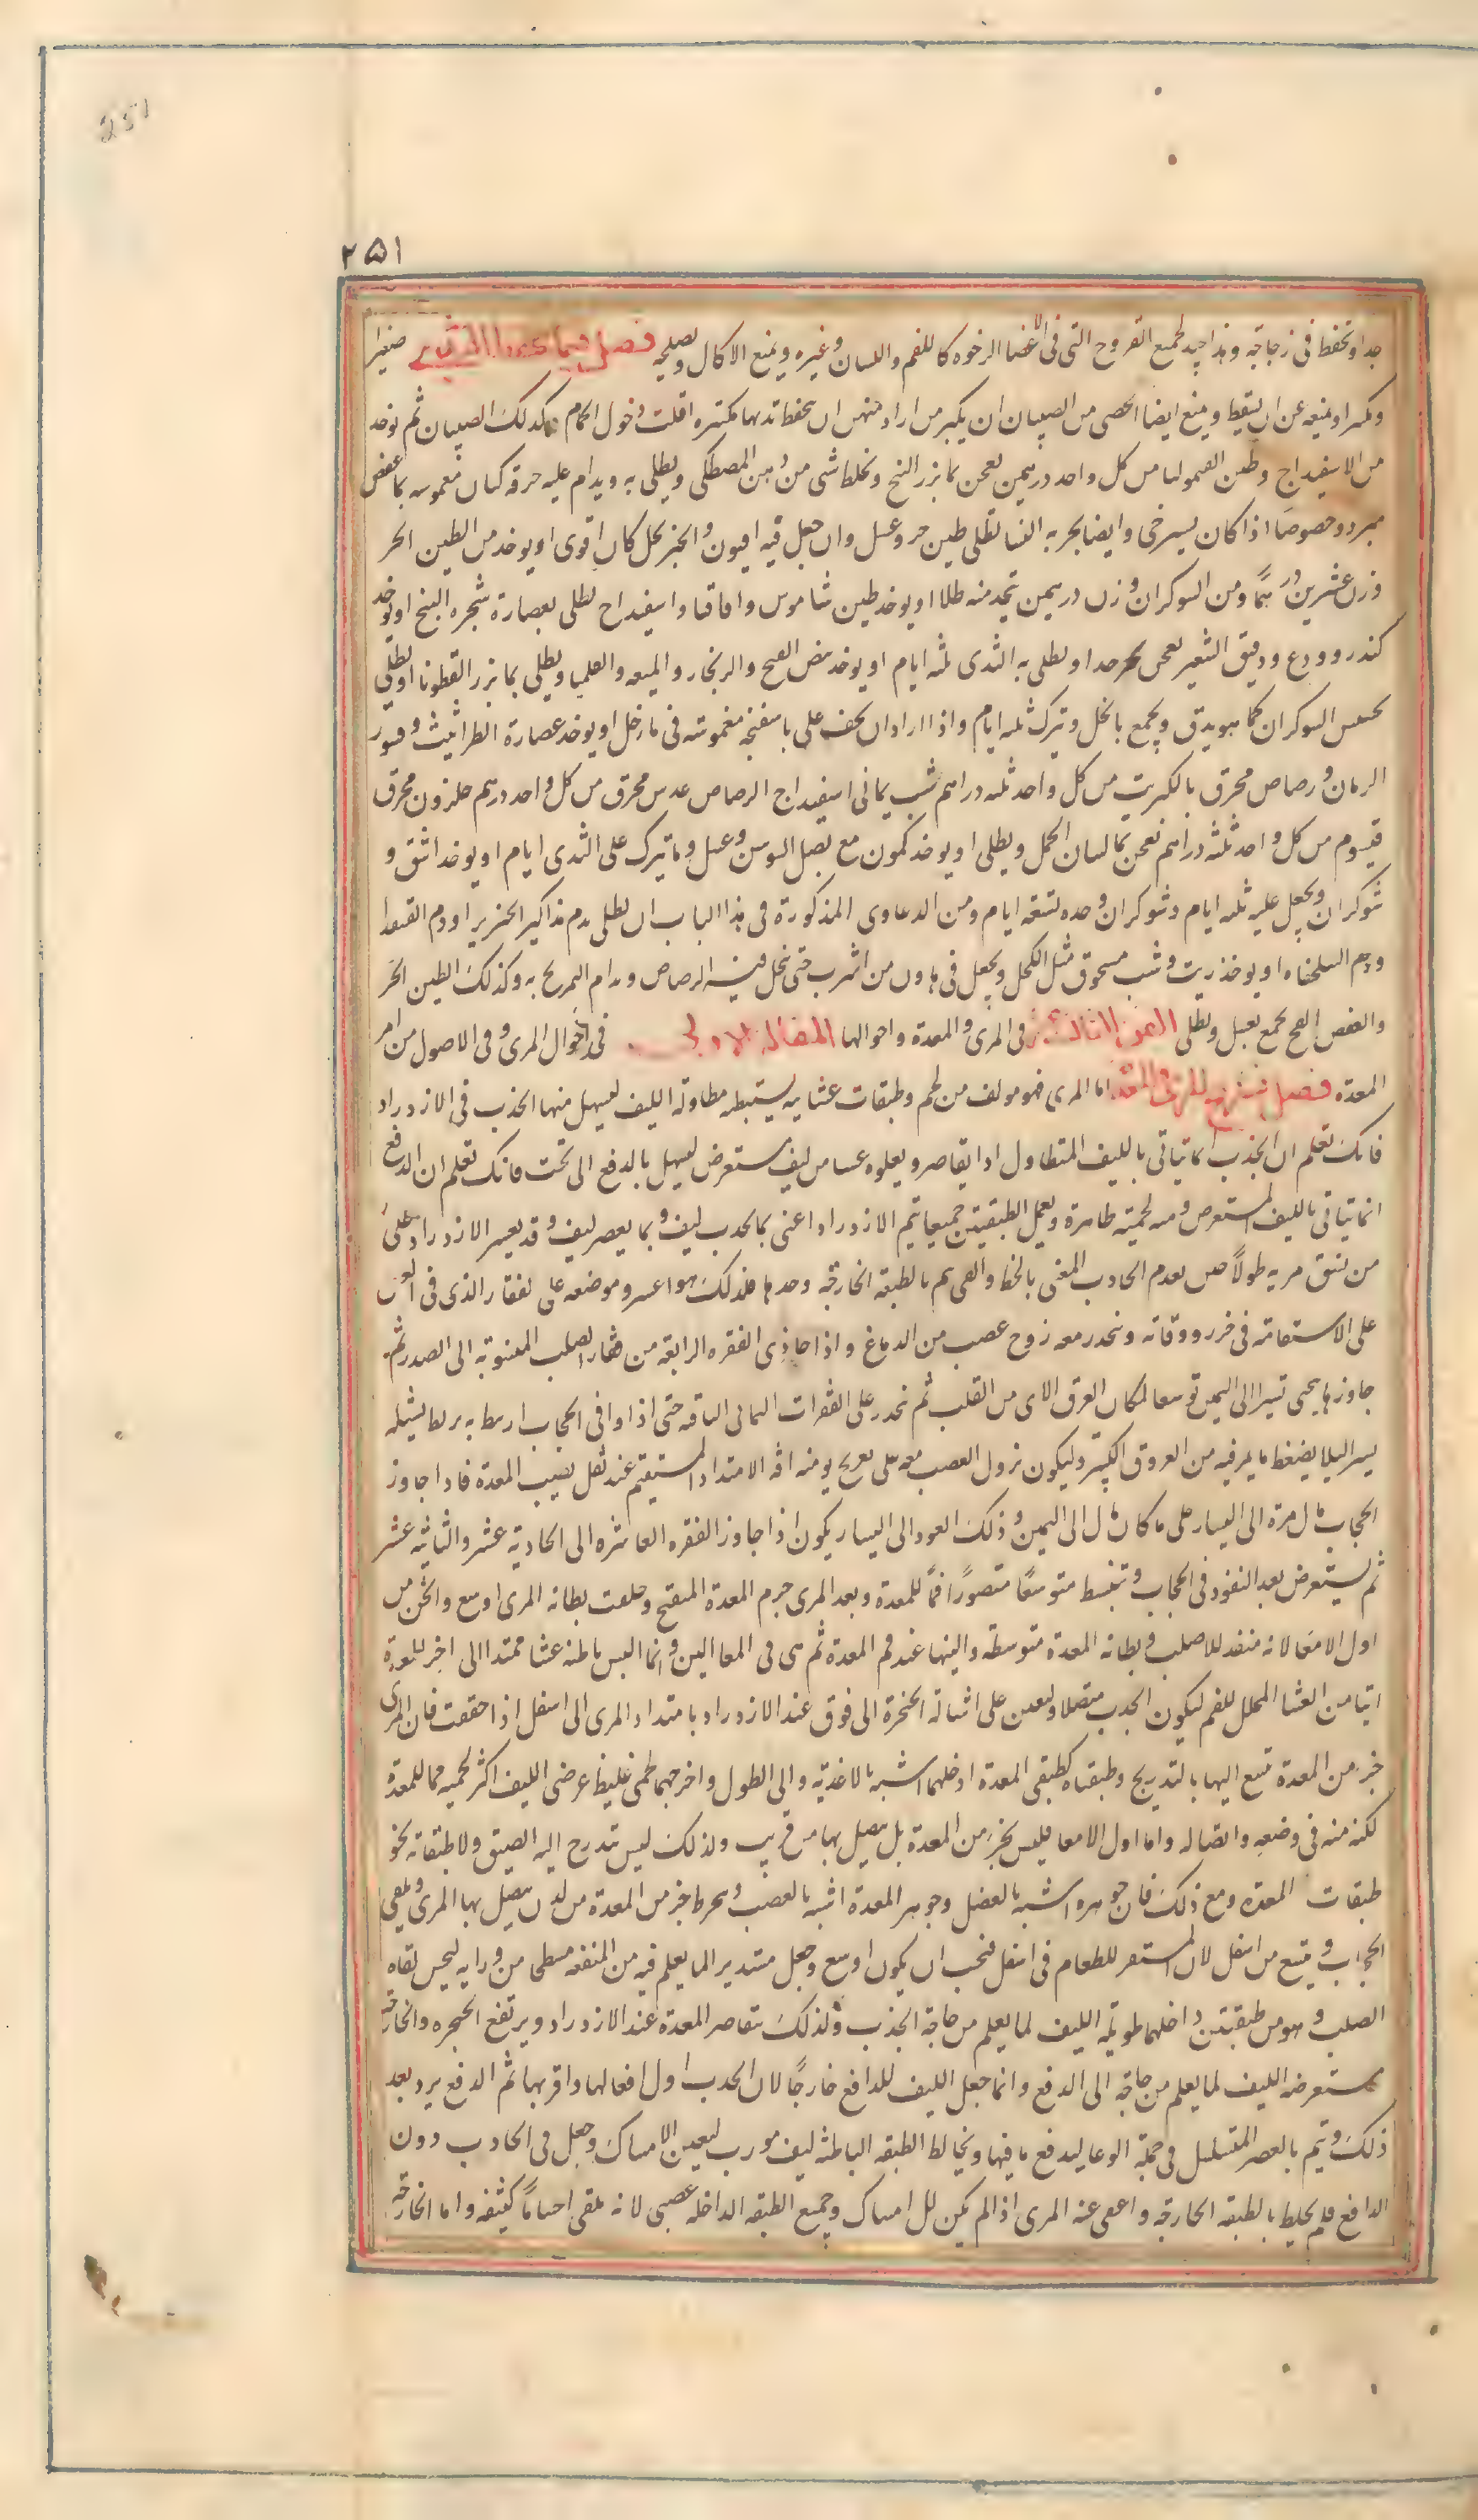 251
٢٥١
جدا وتحفظ فى زجاجة وهذا جيد لجميع القروح التى فى الاعضا الرخوه كالفم واللسان وغيره ويمنع الاكال ويصلحه فصل الثدى صغيرا
ومكسرا ومنيعه عن ان يسقط ويمنع ايضا الخصى من الصبيان ان يكبر من اراد منهن ان يحفظ ثديها مكتنزه اقلت دخول الحمام وكذلك الصبيان ثم يوخذ
من الاسفيداج وطين القيموليا من كل واحد درهمين يعجن بما بزر البنج ويخلط شى من دهن المصطكى ويطلى به ويدام عليه خرقه كتان مغموسه بما عفص
مبرد وخصوصا اذا كان يسترخى وايضا يجر به النسا يطلى طين حر وعسل وان جعل فيه افيون والخبز بخل كان اقوى او يوخذ من الطين الحر
وزن عشرين درهمًا ومن الشوكران وزن درهمين يتخذ منه طلا او يوخذ طين شاموس واقاقيا واسفيداج يطلى بعصارة شجره البنج او يوخذ
كندر وودع ودقيق الشعير يعجن بخل جدا ويطلى به الثدى ثلثه ايام او يوخذ بيض القبج والزنجار والميعه والقلقيا ويطلى بما بزر القطونا او يطلى
بحشيش الشوكران كما هو يدق ويجمع بالخل ويترك ثلثه ايام واذا اراد ان يجف على باسفنجه مغموسه فى ما وخل او يوخذ عصارة الطراثيث وقشور
الرمان ورصاص محرق بالكبريت من كل واحد ثلثه دراهم شب يمانى اسفيداج الرصاص عدس محرق من كل واحد درهم حلزون محرق
قيسوم من كل واحد ثلثه دراهم يعجن بما لسان الحمل ويطلى او يوخذ كمون مع بصل السوسن وعسل وما يترك على الثدى ايام او يوخذ اشق و
شوكران ويجعل عليه ثلثه ايام وشوكران وحده تسعه ايام ومن الدعاوى المذكورة فى هذا الباب ان يطلى بدم مذاكير الخنزير او دم القنفد
ودم السلحفاه او يوخذ زيت وشب مسحوق مثل الكحل ويجعل فى هاون من اسرب حتى ينحل فيه الرصاص ويدام التمريخ به وكذلك الطين الحر
والعفص الفج يجمع بعسل ويطلى الفن الثالث عشر فى المرى والمعدة واحوالها المقاله الاولى فى احوال المرى وفى الاصول من امر
المعدة فصل تشريح المرى والمعدة اما المرى فهو مولف من لحم وطبقات غشائيه يستبطنه مطاولة الليف ليسهل منها الجذب فى الازدراد
فانك تعلم ان الجذب انما يتاتى بالليف المتطاول اذا يقاصر ويعلوه غشا من ليف مستعرض ليسهل بالدفع الى تحت فانك تعلم ان الدفع
انما يتاتى بالليف المستعرض ومنه لحميته ظاهرة وبعمل الطبقتين جميعا يتم الازدراد اعنى بما يجذب ليف وبما يعصر ليف وقد يعسر الازدراد على
من يشق مريه طولًا حين يعدم الجاذب المعنى بالخفا والقى يتم بالطبقه الخارجة وحدها فلذلك هو اعسر وموضعه على الفقار الذى فى العنق
على الاستقامة فى حرز ووقاية وينحدر معه زوج عصب من الدماغ واذا حاذى الفقره الرابعة من فقار الصلب المنسوبة الى الصدر ثم
جاوزها ينحى تيسرا الى اليمين توسعا لمكان العرق الاتى من القلب ثم ينحدر على الفقرات الثمانى الباقيه حتى اذا وافى الحجاب ارتبط به ربط يشيله
يسيرا ليلا يضغط ما يمر فيه من العروق الكبير وليكون نزول العصب معه على تعريج يومنه افه الامتداد المستقيم عند ثقل يصيب المعدة فاذا جاوز
الحجاب مال مرة الى اليسار على ما كان مال الى اليمين وذلك العود الى اليسار يكون اذا جاوز الفقره العاشره الى الحادية عشر والثانيه عشر
ثم يستعرض بعد النفوذ فى الحجاب وتنبسط متوسعًا متصورًا فمًا للمعدة وبعد المرى جرم المعدة المنفتح وخلقت بطانه المرى اوسع واثخن من
اول الامعا لانه منفذ للاصلب وبطانه المعدة متوسطه والينها عند فم المعدة ثم هى فى المعا الين وانما البس باطنه غشا ممتدا الى اخر المعدة
اتيا من الغشا المجلل للفم ليكون الجذب متصلا وليعين على اشالة الحنجرة الى فوق عند الازدراد بامتداد المرى الى اسفل اذا حققت فان المرى
جز من المعدة تتسع اليها بالتدريج وطبقتاه كطبقتى المعدة ادخلهما اشبه بالاغشيه والى الطول واخرجهما لحمى غليظ عرضى الليف اكثر لحميه مما للمعدة
لكنه منه فى وضعه واتصاله واما اول الامعا فليس بجز من المعدة بل يتصل بها من قريب ولذلك ليس يتدرج اليه الضيق ولا طبقاته نحو
طبقات المعده ومع ذلك فان جوهره اشبه بالعضل وجوهر المعدة اشبه بالعصب وينخرط جز من المعدة من لدن يتصل بها المرى ويلقى
الحجاب ويتسع من اسفل لان المستقر للطعام فى اسفل فيجب ان يكون اوسع وجعل مستديرا لما يعلم فيه من المنفعه مسطحا من ورايه ليحسن لقاه
الصلب وهو من طبقتين داخلهما طويلة الليف لما يعلم من حاجة الجذب ولذلك يتقاصر المعدة عند الازدراد ويرتفع الحنجره والخارجة
مستعرضه الليف لما يعلم من حاجة الى الدفع وانما جعل الليف للدافع خارجًا لان الجذب اول افعالها واقربها ثم الدفع يرد بعد
ذلك ويتم بالعصر المتسلسل فى جملة الوعا ليدفع ما فيها ويخالط الطبقه الباطنه ليف مورب ليعين الامساك وجعل فى الجاذب دون
الدافع فلم يخلط بالطبقه الخارجة واعفى عنه المرى اذا لم يكن للامساك وجميع الطبقه الداخله عصبى لانه يلقى اجسامًا كثيفه واما الخارجة